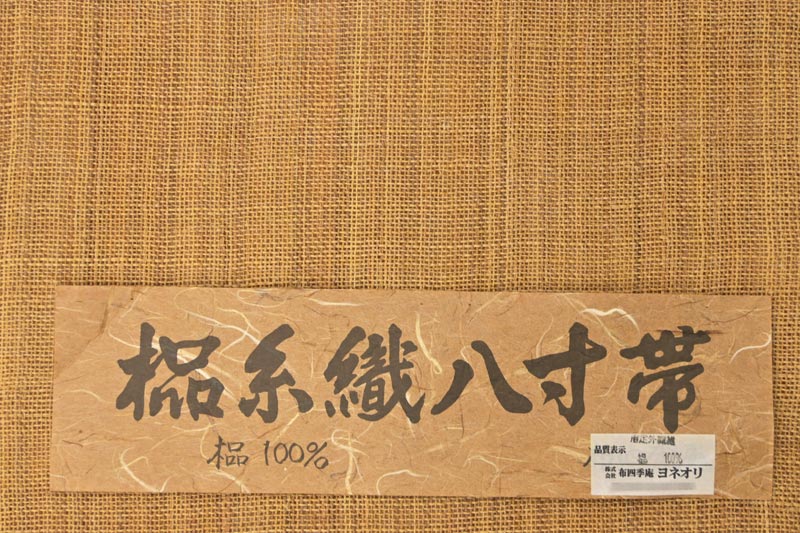 榀糸織八寸帯
榀 100%
指定外繊維
品質表示
榀 100%
株式会社 布四季庵 ヨネオリ